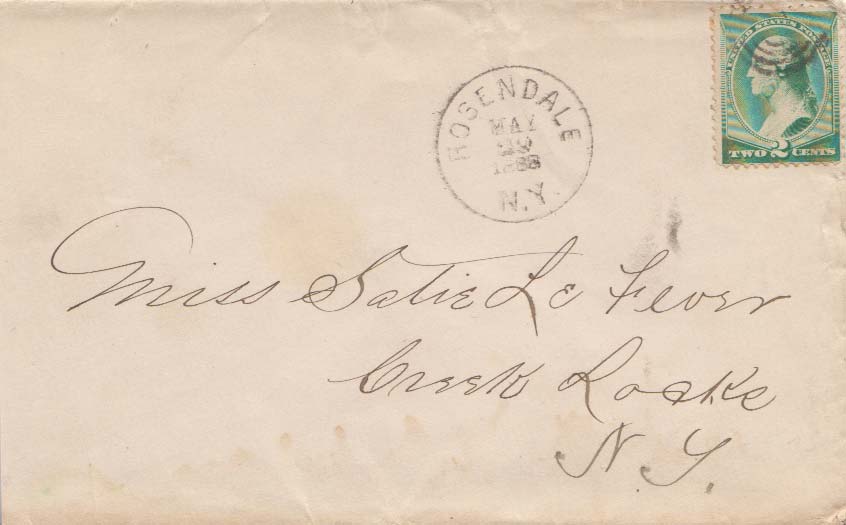 UNITED STATES POSTAGE
TWO 2 CENTS
ROSENDALE
MAY
1888
N.Y.
Miss Satie Le Fever
Creek Locks
N.Y.